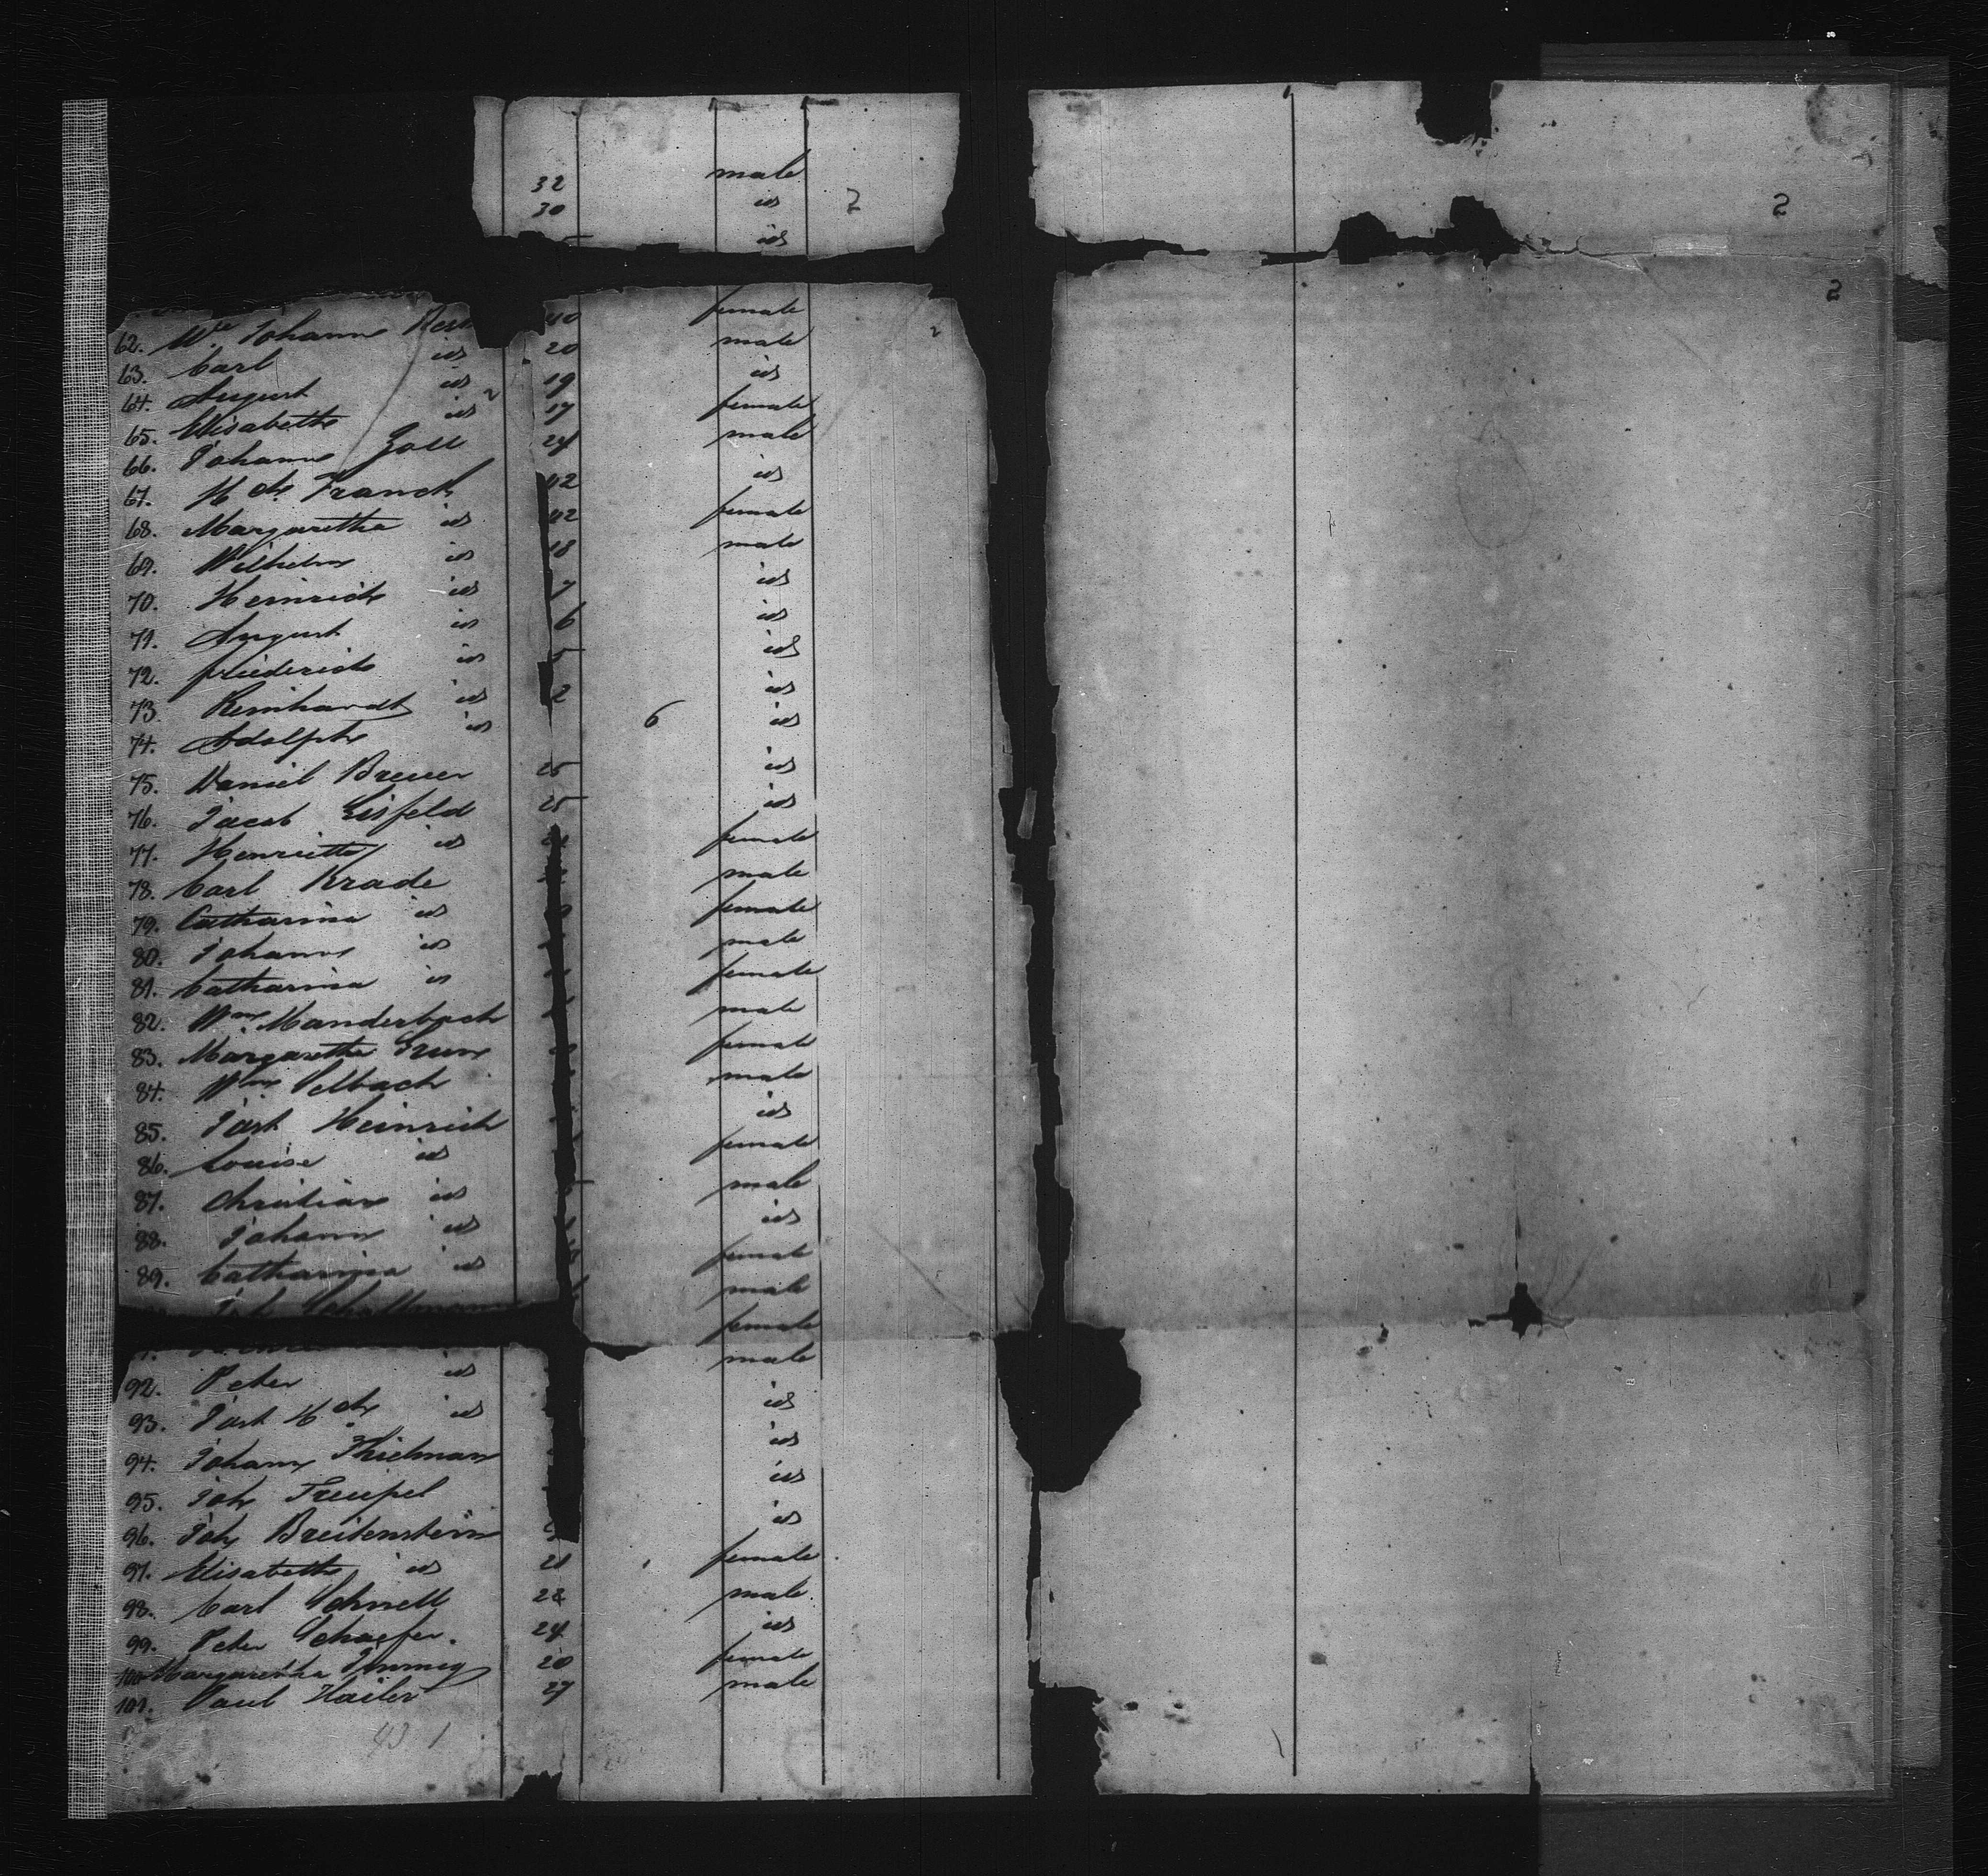 32 male
30 id
id
62. Wve Johann 40 female
63. Carl id 20 male
64. August id 19 id
65. Elisabeth id 17 female
66. Johann Zoll 24 male
67. Hch Franck 42 id
68. Margaretha id 42 female
69. Wilhelm id 18 male
70. Heinrich id 7 id
71. August id 6 id
72. friederich id 5 id
73. Reinhardt id 2 id
74. Adolph id 6 id
75. Daniel Breuer 25 id
76. Jacob Eisfeld 25 id
77. Henriette id female
78. Carl Krade male
79. Catharina id female
80. Johann id male
81. Catharina id female
82. Wm Manderbach male
83. Margaretha female
84. Wm male
85. Jost Heinrich id
86. Louise id female
87. Christian id male
88. Johann id id
89. Catharina id female
male
female
92. Peter id male
93. Jost Hch id id
94. Johann Thielman id
95. Joh Treupel id
96. Joh Breitenstein id
97. Elisabeth id 21 female
98. Carl Schnell 28 male
99. Peter Schaefer. 24 id
100. Margaretha 20 female
101. Paul Hailer 27 male
43 1